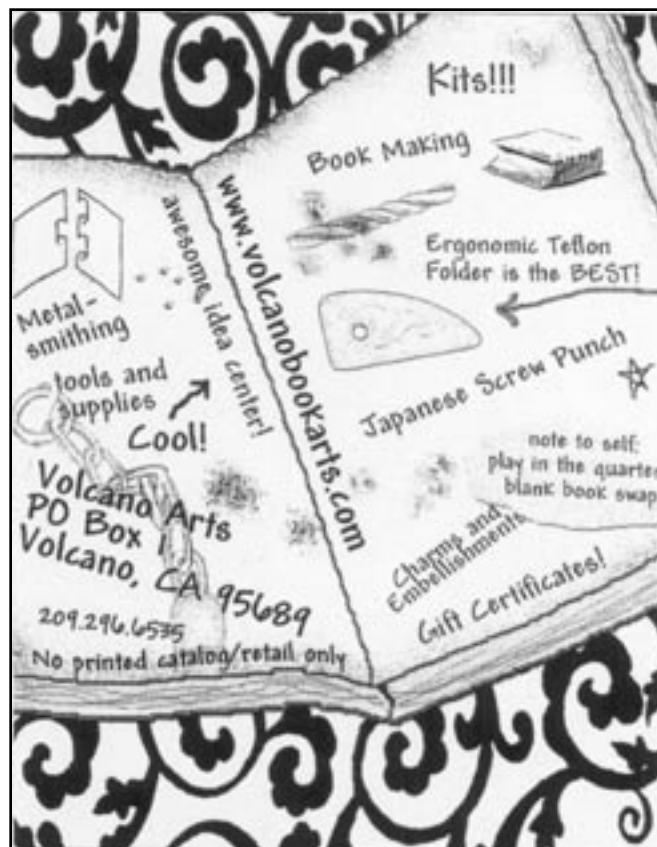 Metal-
smithing
tools and
supplies
Cool!
awesome idea center!
Volcano Arts
PO Box 1
Volcano, CA 95689
209.296.6535
No printed catalog/retail only
www.volcanobookarts.com
Kits!!!
Book Making
Ergonomic Teflon
Folder is the BEST!
Japanese Screw Punch
note to self:
play in the quarte
blank book swap
Charms and
Embellishments
Gift Certificates!